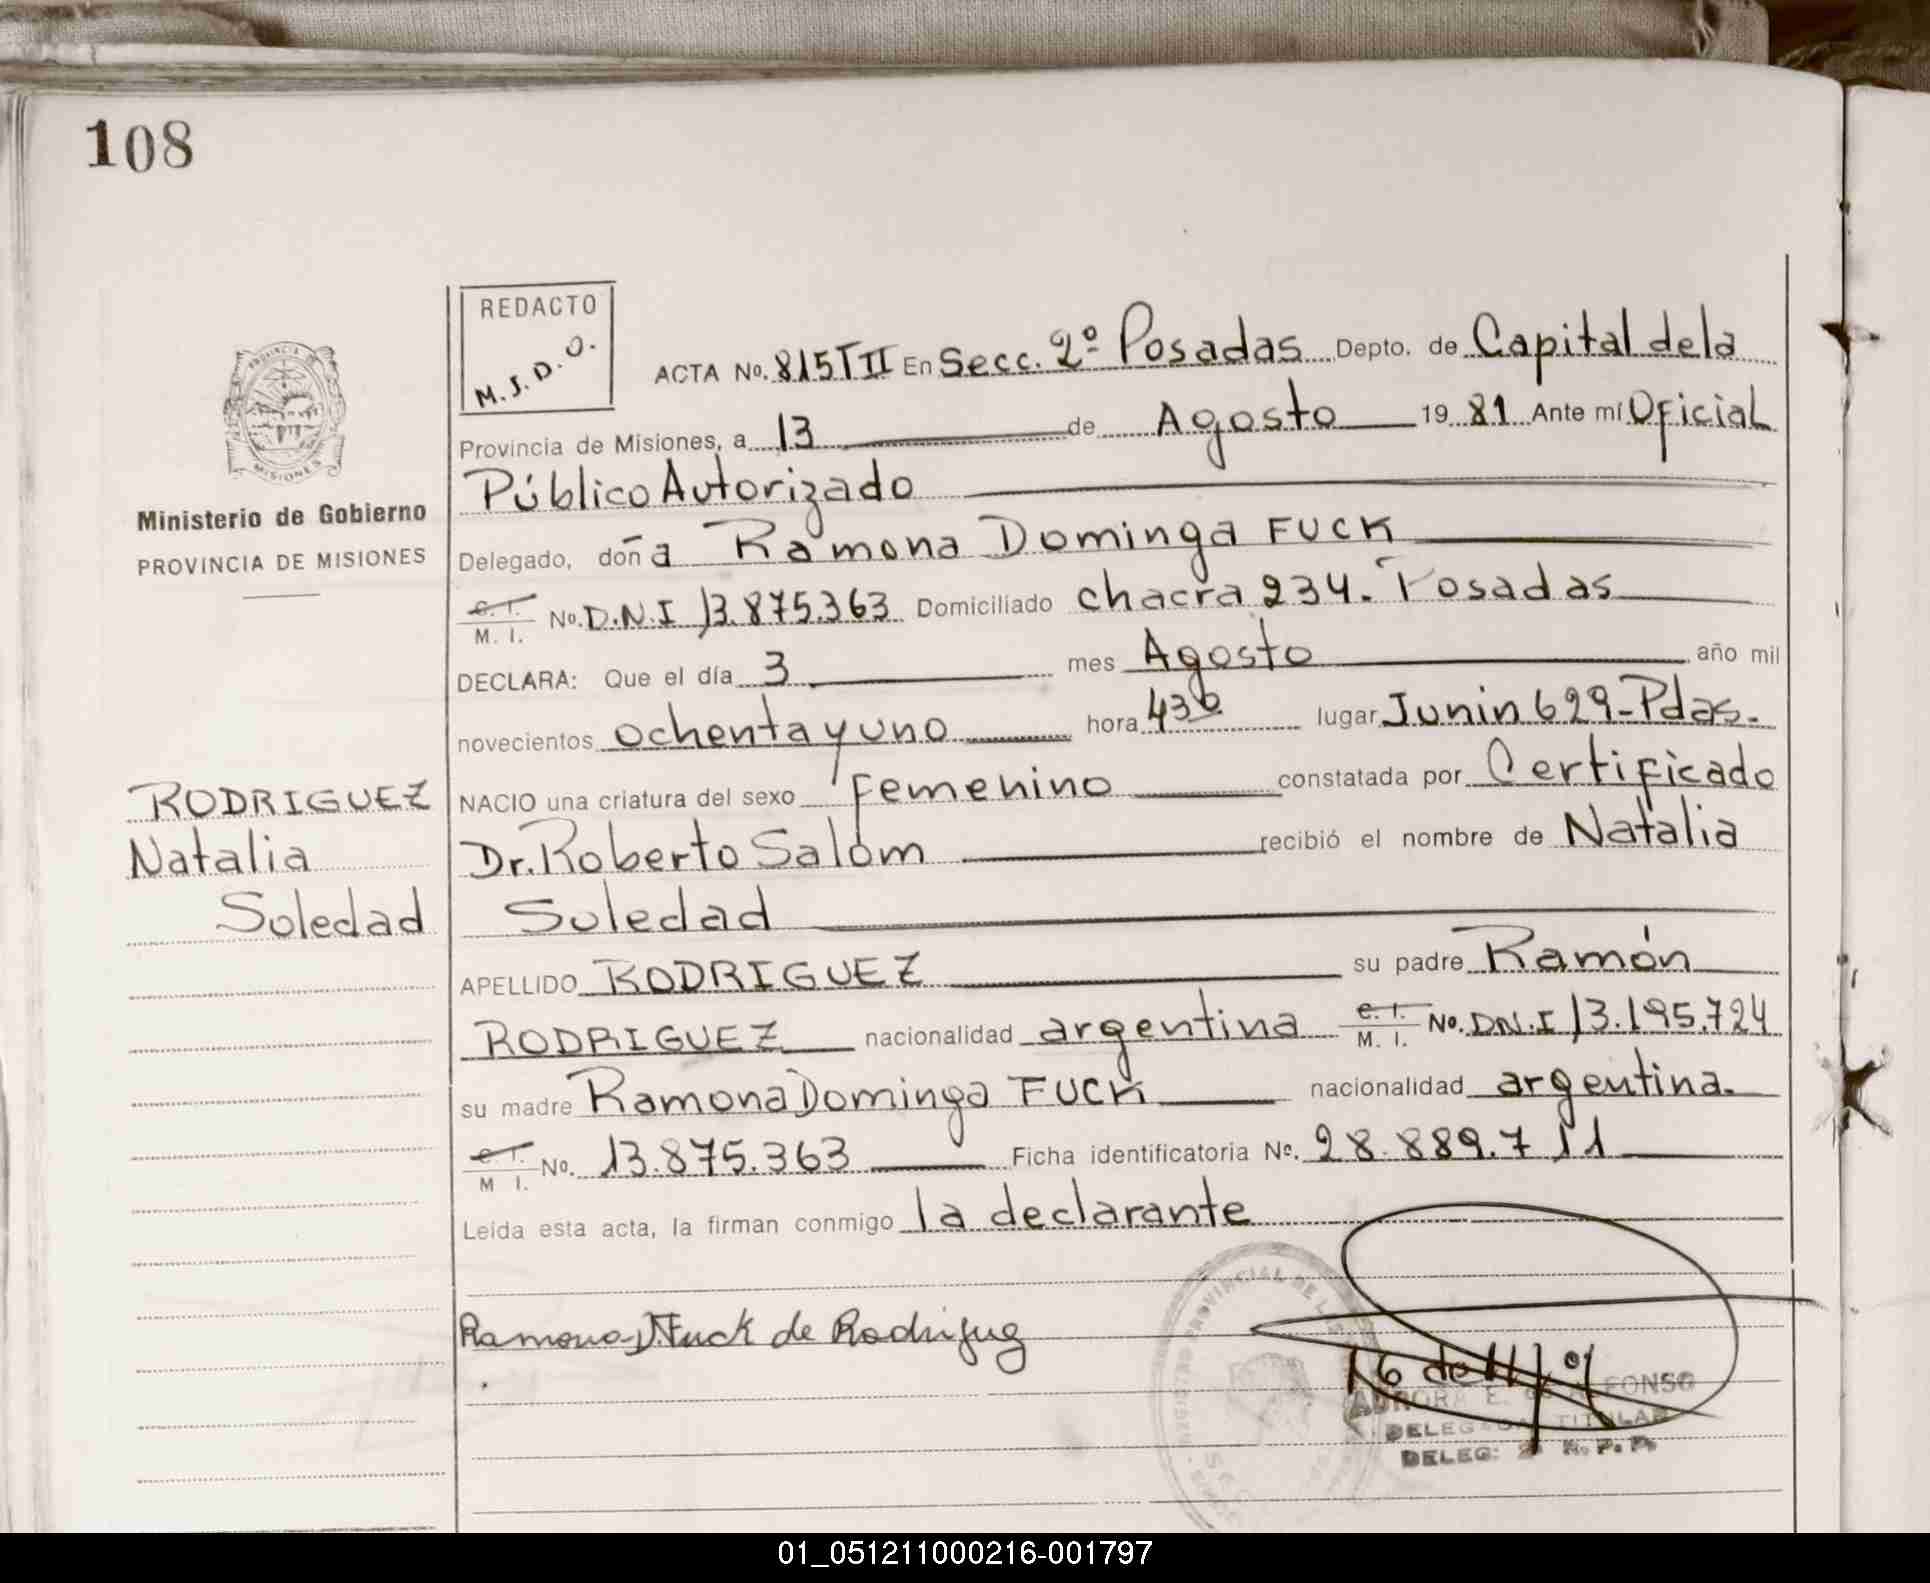 108
REDACTO
M.J.D.O.
ACTA No. 815 T II En Secc. 2º Posadas Depto. de Capital dela
Provincia de Misiones, a 13 de Agosto 19 81 Ante mí Oficial
Público Autorizado
Delegado, doña Ramona Dominga FUCK
C. I. M. I. No. D.N.I 13.875.363 Domiciliado chacra 234. Posadas
DECLARA: Que el día 3 mes Agosto año mil
novecientos ochenta y uno hora 4 30 lugar Junin 629-Pdas.
NACIO una criatura del sexo Femenino constatada por Certificado
Dr. Roberto Salom recibió el nombre de Natalia
Soledad
APELLIDO RODRIGUEZ su padre Ramón
RODRIGUEZ nacionalidad argentina C. I. M. I. No. D.N.I 13.195.724
su madre Ramona Dominga FUCK nacionalidad argentina.
C. I. M I. No. 13.875.363 Ficha identificatoria Nº. 28.889.711
Leída esta acta, la firman conmigo la declarante
Ramona D. Fuck de Rodriguez
PROVINCIA DE
MISIONES
Ministerio de Gobierno
PROVINCIA DE MISIONES
RODRIGUEZ
Natalia
Soledad
REGISTRO PROVINCIAL DE LAS
16 de
AURORA E. FONSO
DELEGADA TITULAR
DELEG: 2ª R. P. P.
01_051211000216-001797